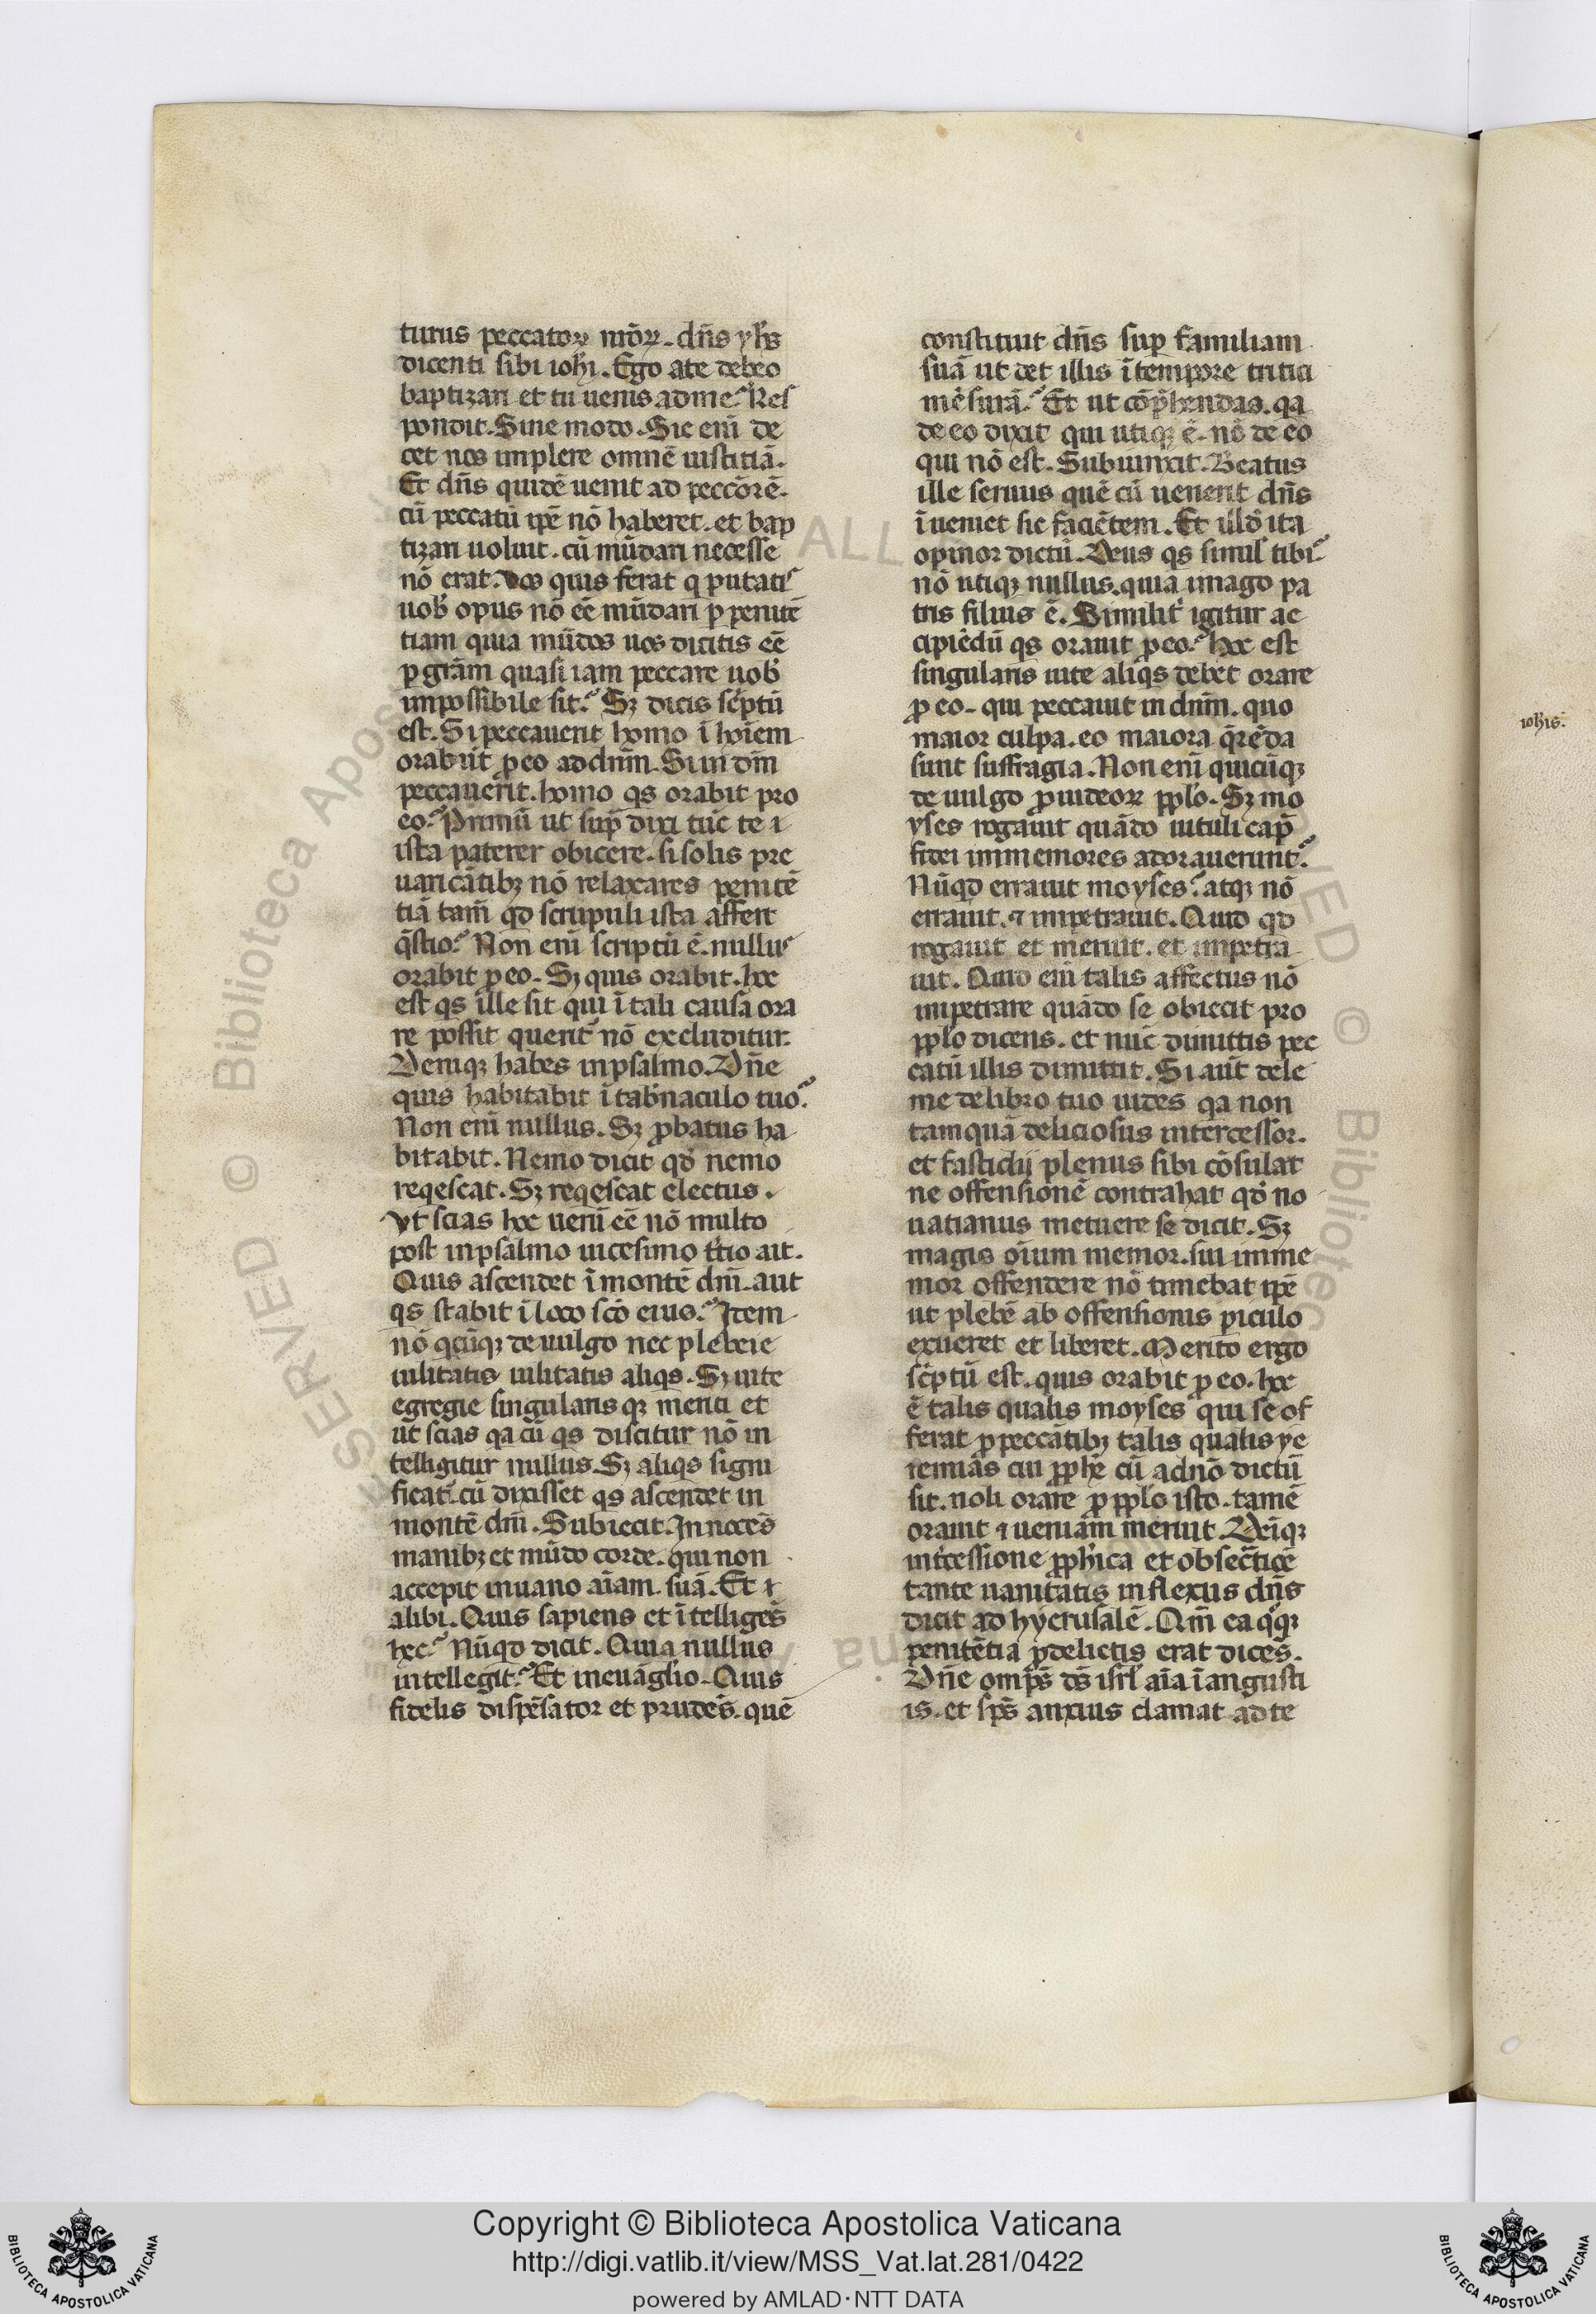 turus peccatoꝝ mōꝝ. dn̄s yhs̄
dicenti sibi ioħi. Ego a te debeo
baptizari et tu uenis ad me? Res
pondit. Sine modo. Sic eni̅ de
cet nos implere omnē iustitiā.
Et dn̄s quidē uenit ad peccōrē.
cū peccatū ip̄e nō haberet. et bap
tizari uoluit. cū mūdari necesse
nō erat. Vos quis ferat q putatis
uob̄ opus nō eē mūdari p penitē
tiam quia mūdos uos dicitis eē
p grām quasi iam peccare uob̄
impossibile sit? Sꝫ dicis scͥptū
est. Si peccauerit homo ī hoīem
orabūt ꝓ eo ad dn̄m. Si in dm̄
peccauerit. homo qͥs orabit pro
eo? Primū ut sup̄ dixi tūc te i
ista paterer obicere. si solis pre
uaricātibꝫ nō relaxares penitē
tiā tam̄ qd scrupuli ista affert
q̄stio? Non eni̅ scriptū ē. nullus
orabit ꝓ eo. Sꝫ quis orabit. hoc
est qͥs ille sit qui ī tali causa ora
re possit querit᷑ nō excluditur.
Deniqꝫ habes in psalmo. Dn̄e
quis habitabit ī tab̄naculo tuo?
Non eni̅ nullus. Sꝫ ꝓbatus ha
bitabit. Nemo dicit qd̓ nemo
reqͥescat. Sꝫ reqͥescat electus.
Vt scias hoc ueru̅ eē nō multo
post in psalmo uicesimo tͨtio ait.
Quis ascendet ī montē dm̄. aut
qͥs stabit ī loco scō eius? Item
nō qͥcūqꝫ de uulgo nec plebeie
uilitatis uilitatis aliqͥs. Sꝫ uite
egregie singularisqꝫ meriti et
ut scias qͣ cū qͥs discitur nō in
telligitur nullus. Sꝫ aliqͥs signi
ficat᷑. cū dixisset qͥs ascendet in
montē dm̄. Subiecit. Innocēs
manibꝫ et mūdo corde. qui non
accepit in uano aīam suā. Et i
alibi. Quis sapiens et ītelligēs
hec? Nūqd dicit. Quia nullus
intellegit? Et in euāglio. Quis
fidelis dispēsator et prudēs. quē
constituit dn̄s sup familiam
suā ut det illis ī tempore tritici
mēsurā? Et ut cōp̄hendas. qͣ
de eo dixit qui utiqꝫ ē. nō de eo
qui nō est. Subiunxit. Beatus
ille seruus quē cū uenerit dn̄s
īueniet sic faciētem. Et illd̓ ita
opinor dictū. Deus qͥs simil᷑ tibi?
nō utiqꝫ nullus. quia imago pa
tris filius ē. Similit᷑ igitur ac
cipiēdū qͥs orauit ꝓ eo? hoc est
singularis uite aliqͥs debet orare
ꝓ eo. qui peccauit in dn̄m. quo
maior culpa. eo maiora q̄rēda
sunt suffragia. Non eni̅ quicūqꝫ
de uulgo ꝓuideoꝝ ppl̄o. Sꝫ mo
yses rogauit quādo uituli cap̄
fidei immemores adorauerunt?
Nūqd errauit moyses? atqꝫ nō
errauit. ⁊ impetrauit. Quid qd
rogauit et meruit. et impetra
uit. Quid eni̅ talis affectus nō
impetrare quādo se obiecit pro
ppl̄o dicens. et nūc dimittis pec
catū illis dimittit. Si aūt dele
me de libro tuo uides qͣ non
tamquā deliciosus intercessor.
et fastidij plenus sibi cōsulat
ne offensionē contrahat qd̓ no
uatianus metuere se dicit. Sꝫ
magis oīum memor. sui imme
mor offendere nō timebat ip̄e
ut plebē ab offensionis piculo
exueret et liberet. Merito ergo
scͥptū est. quis orabit ꝓ eo. hoc
ē talis qualis moyses qui se of
ferat ꝓ peccātibꝫ talis qualis ye
remias cui ꝓphē cū ad nō dictū
sit. noli orare ꝓ ppl̄o isto. tamē
orauit ⁊ ueniam meruit. Deīqꝫ
int᷑cessione ꝓph̓ica et obsec̄ticē
tante uanitatis inflexus dn̄s
dicit ad hyerusalē. Qm̄ ea qͦqꝫ
penitētia ꝓ delictis erat dicēs.
Dn̄e omp̄s ds̄ isrl̄ aīa ī angusti
is. et sp̄s anxius clamat ad te
ioħis.
Copyright © Biblioteca Apostolica Vaticana
http://digi.vatlib.it/view/MSS_Vat.lat.281/0422
powered by AMLAD·NTT DATA
BIBLIOTECA APOSTOLICA VATICANA
BIBLIOTECA APOSTOLICA VATICANA